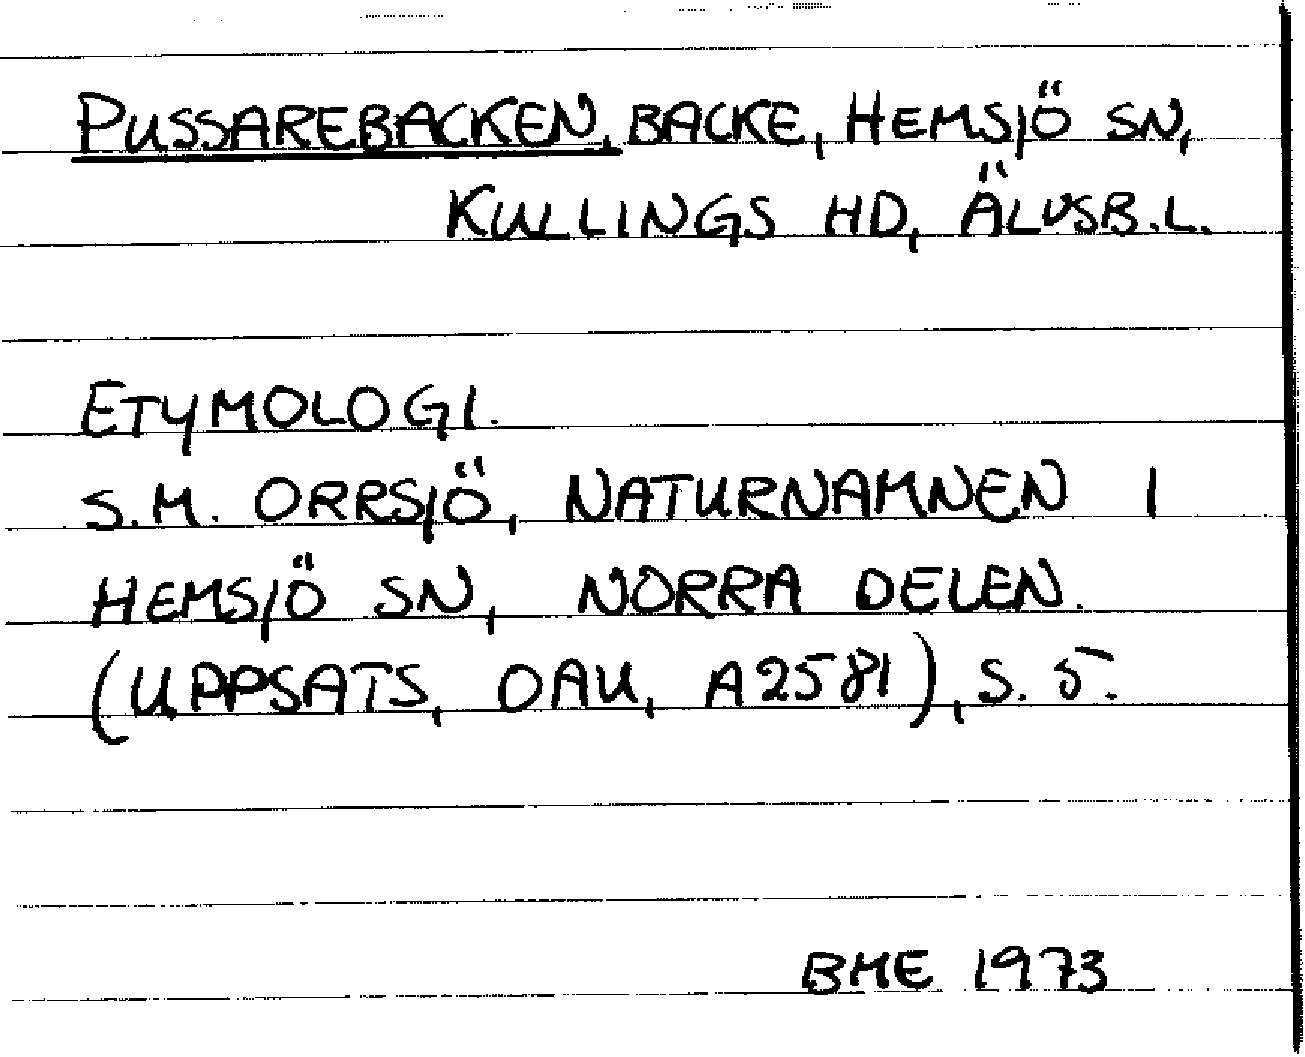 PUSSAREBACKEN, BACKE, HEMSJÖ SN,
KULLINGS HD, ÄLVSB.L.
ETYMOLOGI.
S.M. ORRSJÖ, NATURNAMNEN I
HEMSJÖ SN, NORRA DELEN.
(UPPSATS, OAU, A2581), S. 5.
BME 1973